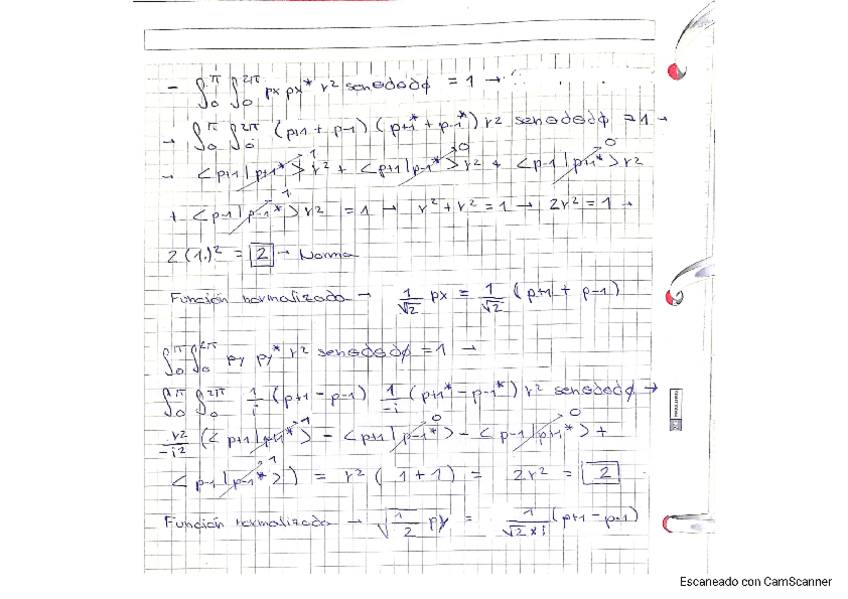 - ∫₀^π ∫₀^2π px px* r² senθdθdϕ = 1 →
→ ∫₀^π ∫₀^2π (p+1 + p-1) (p+1* + p-1*) r² senθdθdϕ = 1 →
→ <p+1|p+1*> r² + <p+1|p-1*> r² + <p-1|p+1*> r²
+ <p-1|p-1*> r² = 1 → r² + r² = 1 → 2r² = 1 →
2(1)² = 2 → Norma
Función normalizada → 1/√2 px = 1/√2 (p+1 + p-1)
∫₀^π ∫₀^2π py py* r² senθdθdϕ = 1 →
∫₀^π ∫₀^2π 1/i (p+1 - p-1) 1/-i (p+1* - p-1*) r² senθdθdϕ →
r²/-i² (<p+1|p+1*> - <p+1|p-1*> - <p-1|p+1*> +
<p-1|p-1*>) = r² (1+1) = 2r² = 2
Función normalizada → √1/2 py = 1/√2×i (p+1 - p-1)
Escaneado con CamScanner